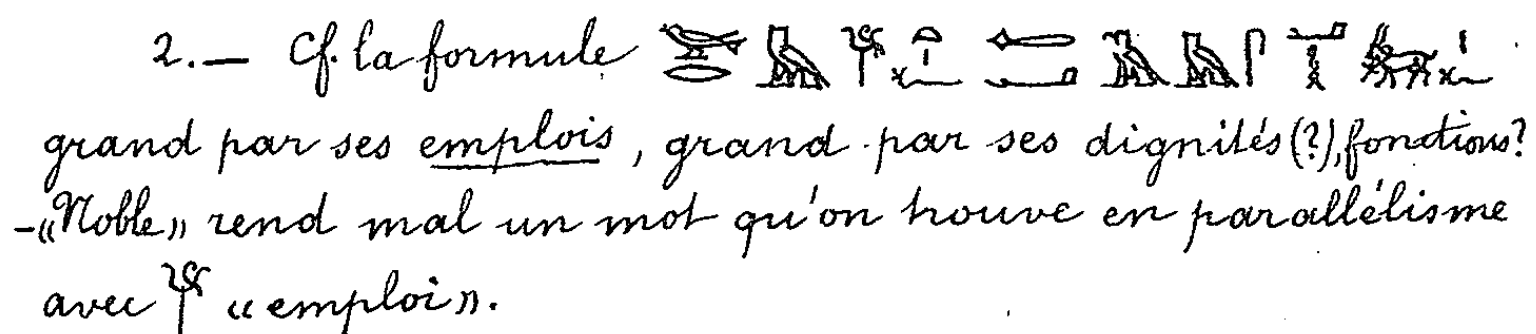 2. — Cf. la formule 𓅨𓂋𓅓𓋇𓏏𓏤𓆑𓉻𓂝
grand par ses emplois, grand par ses dignités(?), fonctions?
– «Noble» rend mal un mot qu'on trouve en parallélisme
avec 𓋇 «emploi».